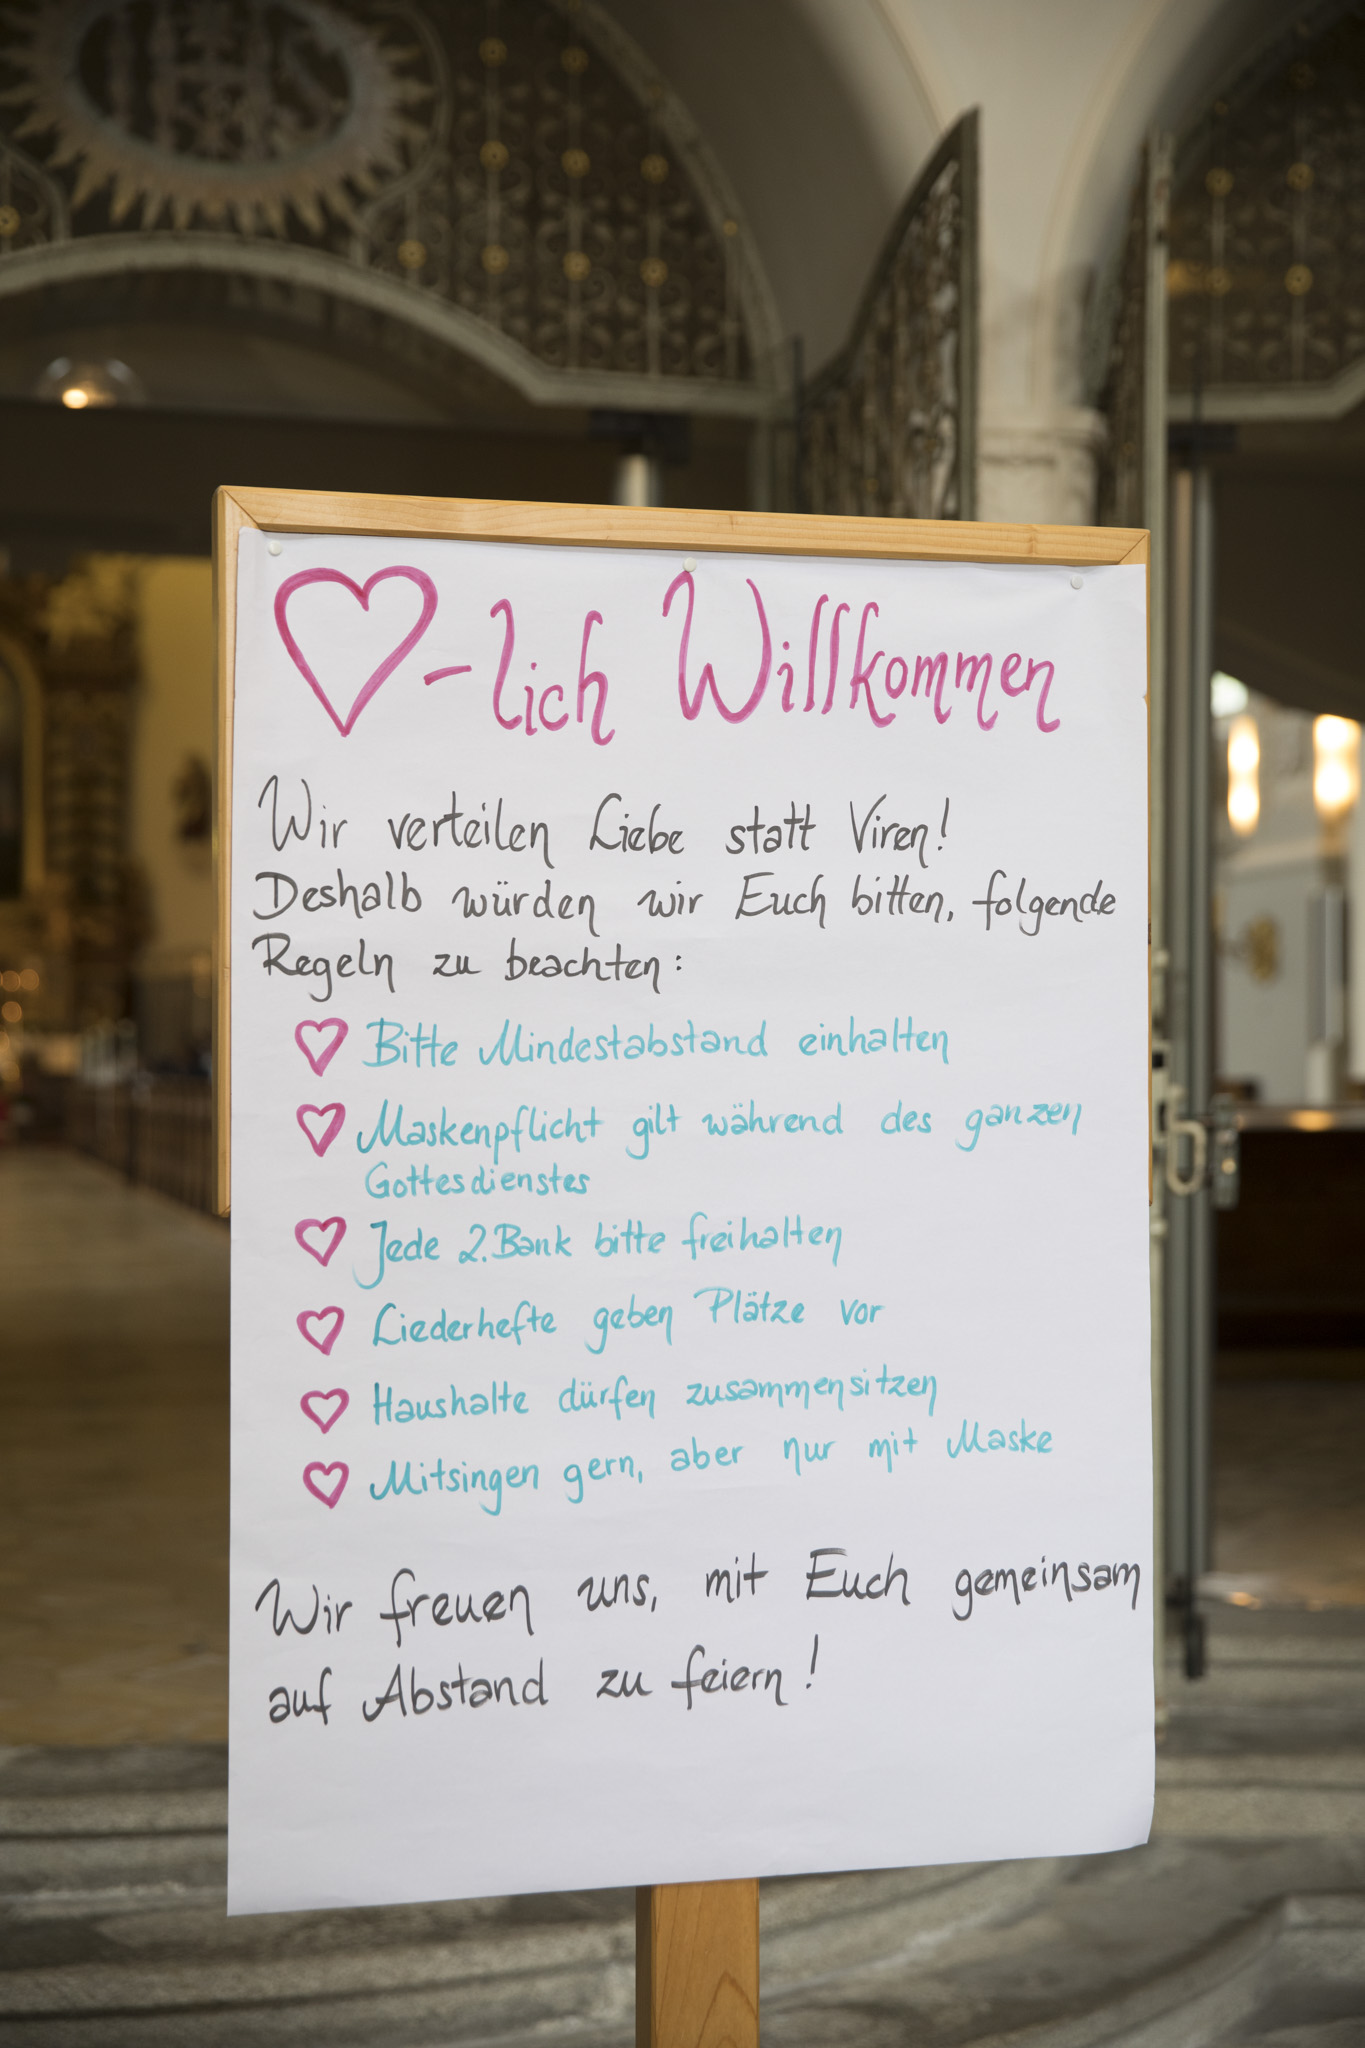 ♥-lich Willkommen
Wir verteilen Liebe statt Viren!
Deshalb würden wir Euch bitten, folgende
Regeln zu beachten:
♥ Bitte Mindestabstand einhalten
♥ Maskenpflicht gilt während des ganzen
Gottesdienstes
♥ Jede 2. Bank bitte freihalten
♥ Liederhefte geben Plätze vor
♥ Haushalte dürfen zusammensitzen
♥ Mitsingen gern, aber nur mit Maske
Wir freuen uns, mit Euch gemeinsam
auf Abstand zu feiern!